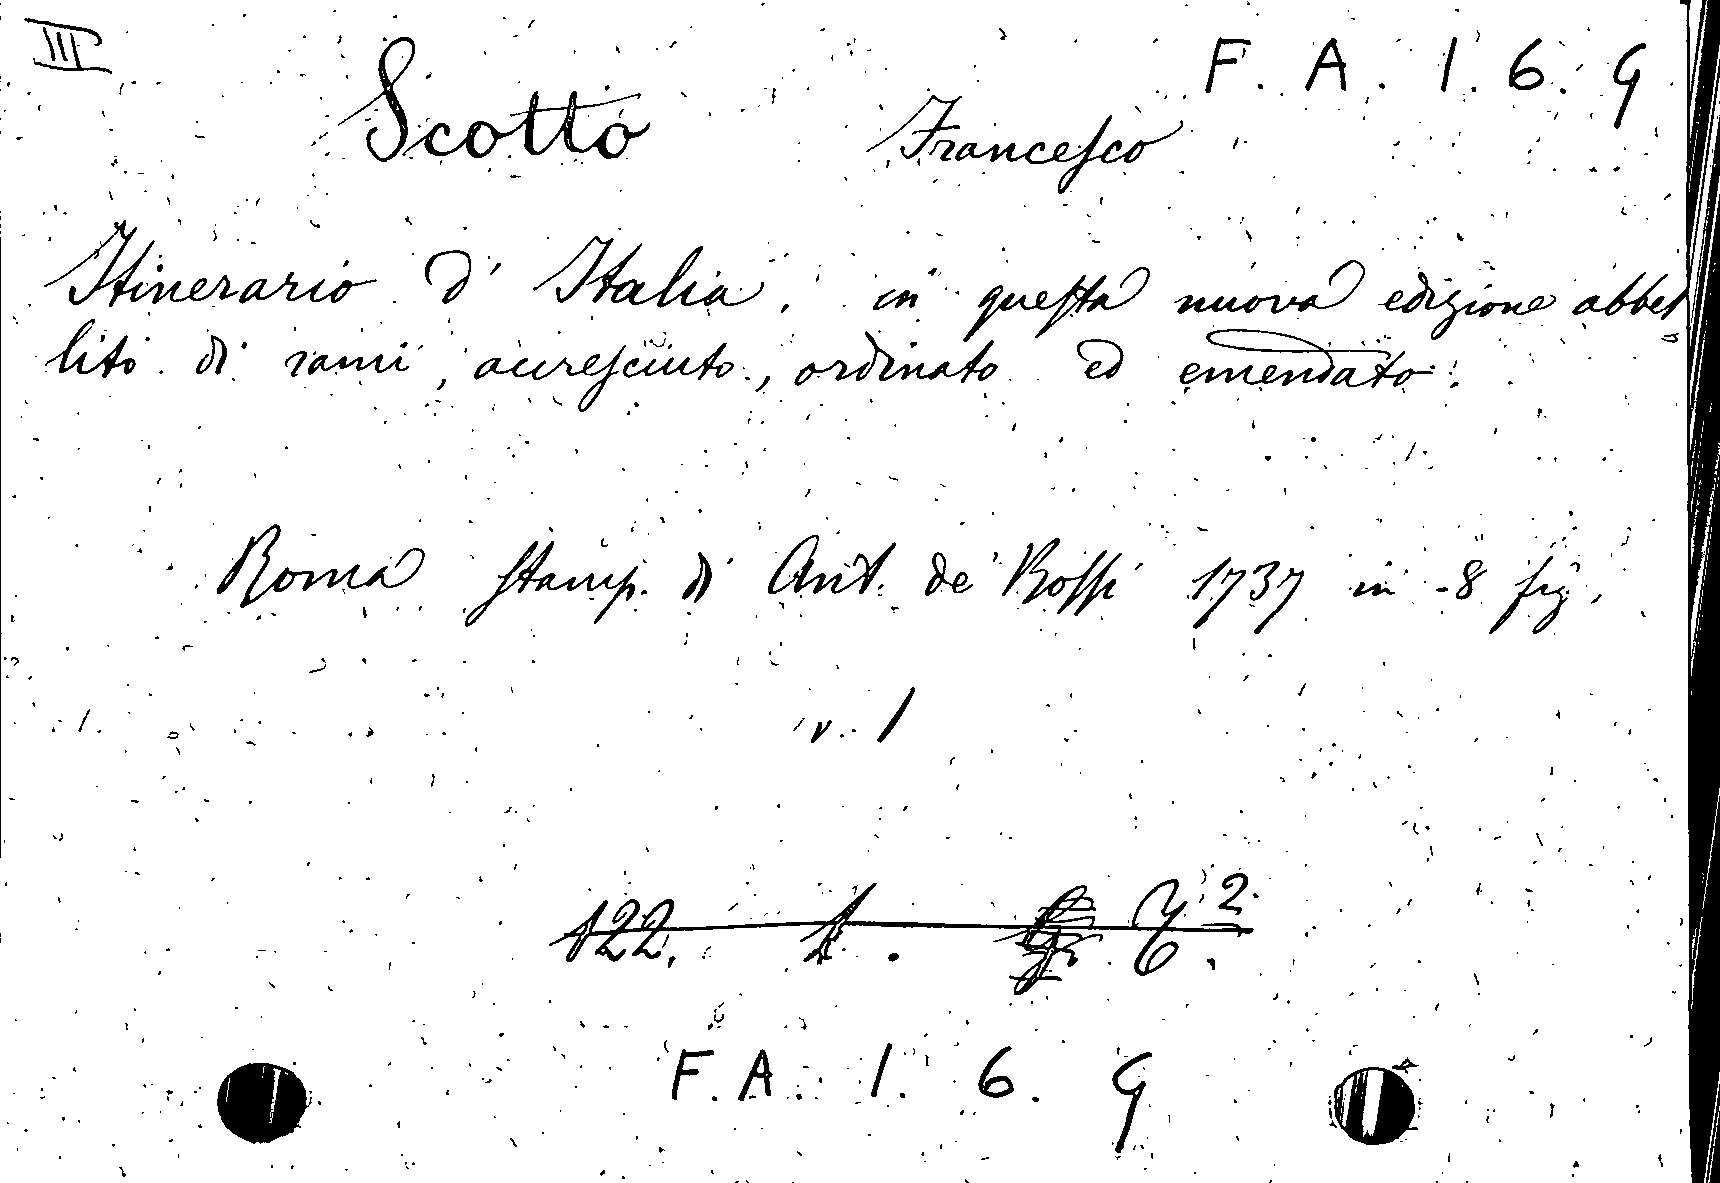 III
F. A. 1. 6. 9
Scotto Francesco
Itinerario d' Italia. in questa nuova edizione abbel
lito di rami, accresciuto, ordinato ed emendato.
Roma stamp. di Ant. de' Rossi 1737 in -8 fig.
v. 1
122. 1.
F. A. 1. 6. 9